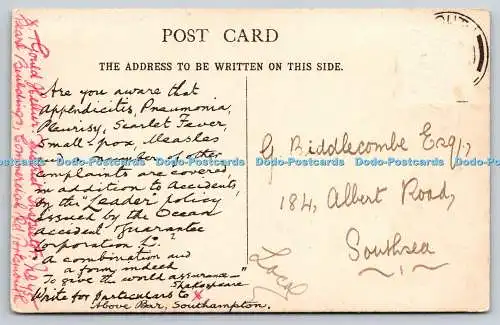 POST CARD
THE ADDRESS TO BE WRITTEN ON THIS SIDE.
Are you aware that
Appendicitis, Pneumonia,
Pleurisy, Scarlet Fever,
Small-pox, Measles
and a number of other
complaints are covered
in addition to Accidents,
by the "Leader" policy
issued by the Ocean
accident & Guarantee
Corporation Ld ?
"A combination and
a form indeed
To give the world assurance"-
Shakespeare
Write for particulars to X
Above Bar, Southampton.
G. Biddlecombe Esq
184, Albert Road,
Southsea
Local
X Gould
Pearl Buildings, Commercial Rd Portsmouth
Dodo-Postcards Dodo-Postcards Dodo-Postcards Dodo-Postcards